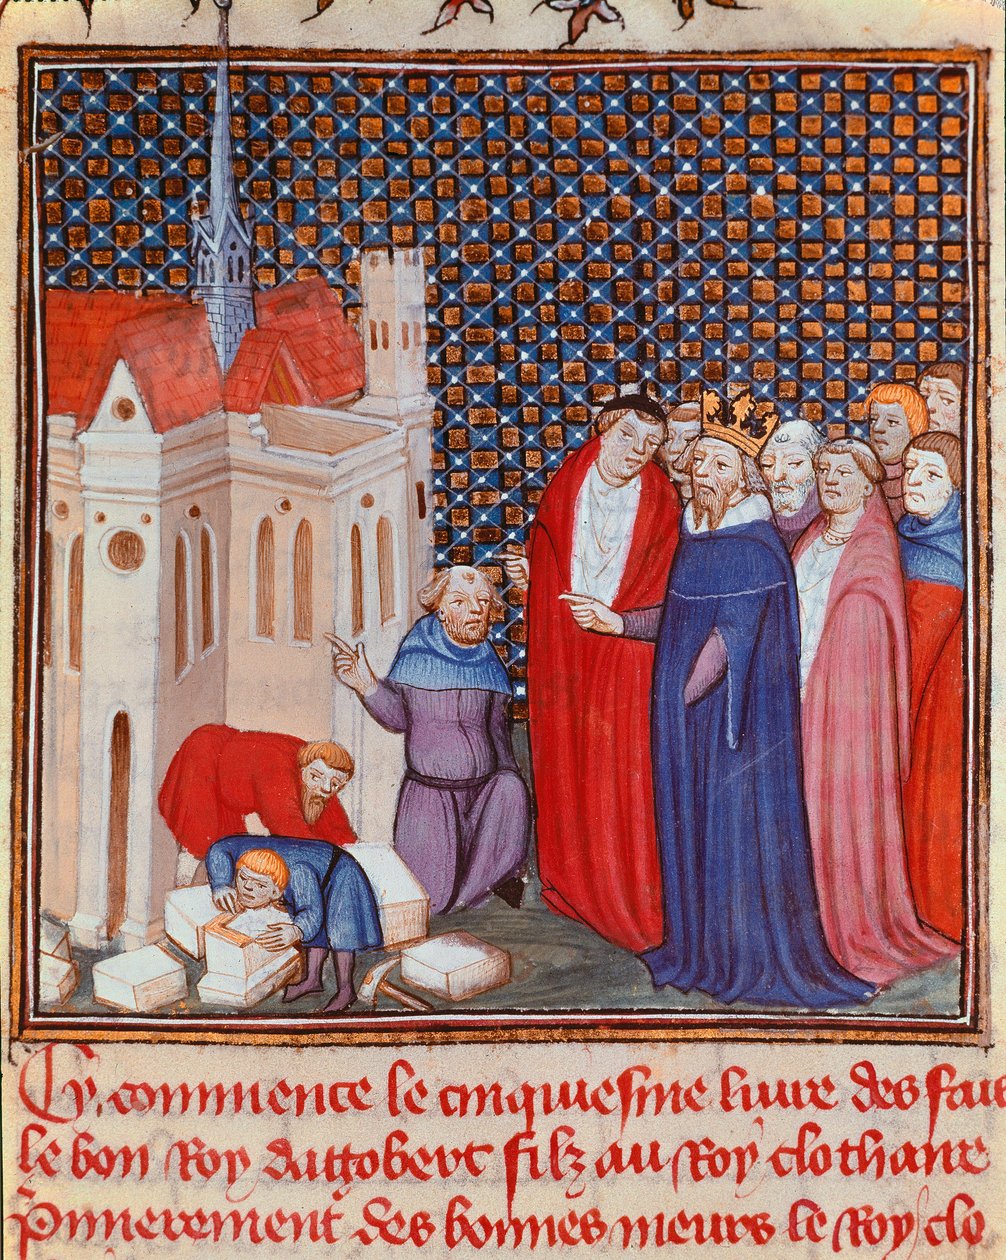 Cy commence le cinquiesme livre des fais
le bon Roy dagobert filz au Roy clothaire
premierement des bonnes meurs le Roy clo